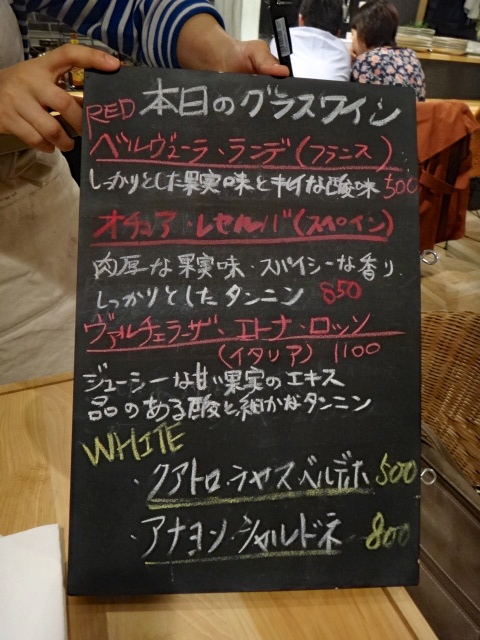 RED 本日のグラスワイン
ベルヴューラ・ランデ(フランス)
しっかりとした果実味とキレイな酸味 500
オチョア・レセルバ(スペイン)
肉厚な果実味・スパイシーな香り
しっかりとしたタンニン 850
ヴァルチェラーザ・エトナ・ロッソ
(イタリア) 1100
ジューシーな甘い果実のエキス
品のある酸と細かなタンニン
WHITE
・クアトロ・シャス ベルデホ 500
・アナヨン・シャルドネ 800